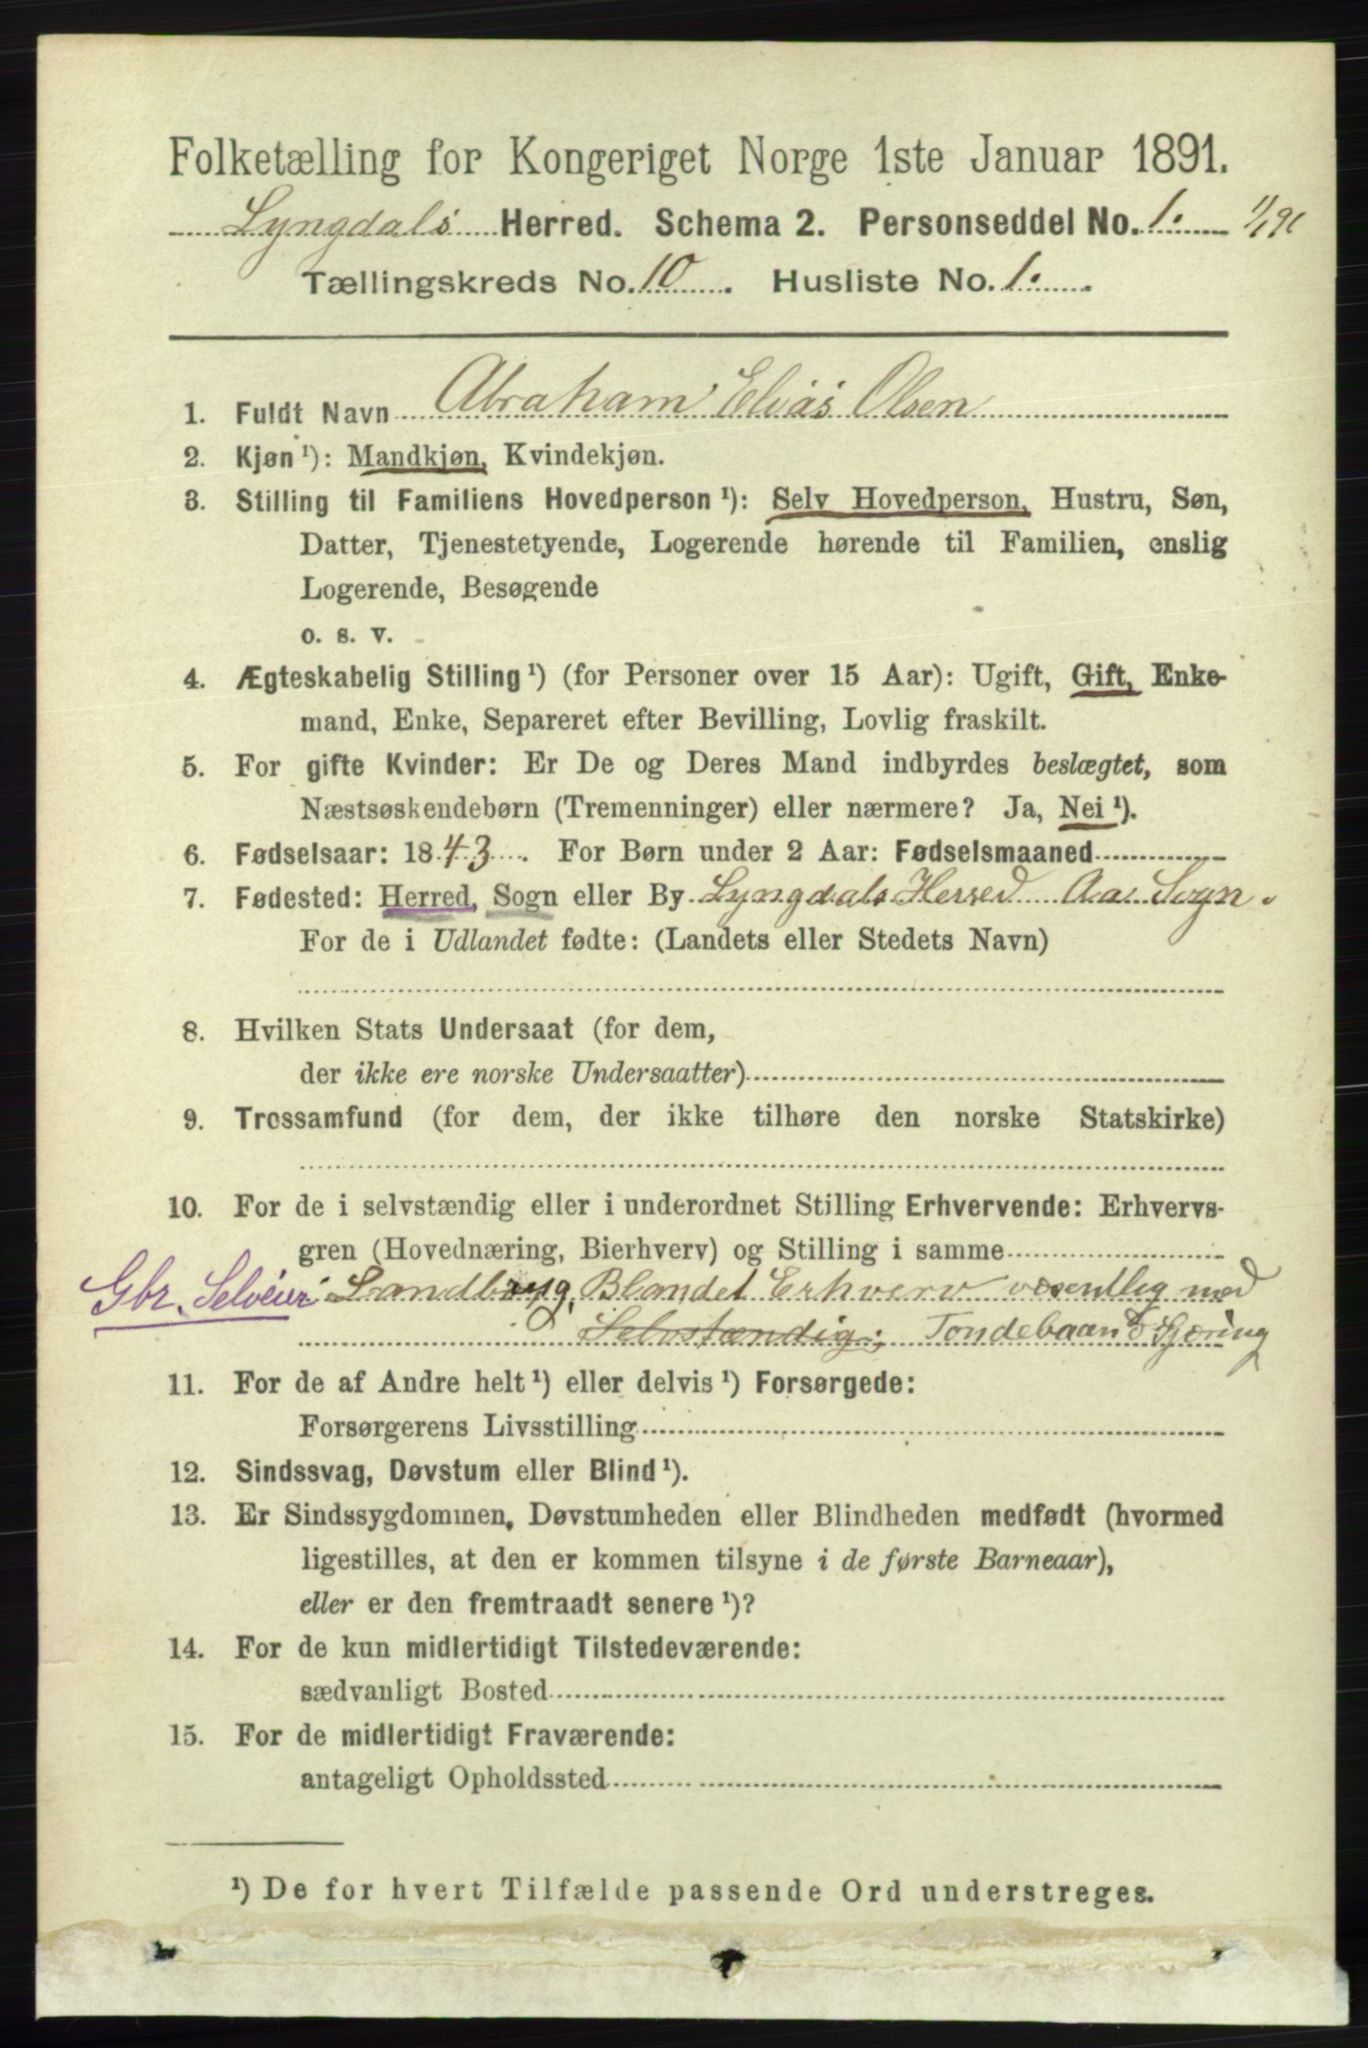 Folketælling for Kongeriget Norge 1ste Januar 1891.
Lyngdals Herred. Schema 2. Personseddel No. 1.
Tællingskreds No. 10. Husliste No. 1.
1. Fuldt Navn Abraham Elias Olsen
2. Kjøn ¹): Mandkjøn, Kvindekjøn.
3. Stilling til Familiens Hovedperson ¹): Selv Hovedperson, Hustru, Søn,
Datter, Tjenestetyende, Logerende hørende til Familien, enslig
Logerende, Besøgende
o. s. v.
4. Ægteskabelig Stilling ¹) (for Personer over 15 Aar): Ugift, Gift, Enke-
mand, Enke, Separeret efter Bevilling, Lovlig fraskilt.
5. For gifte Kvinder: Er De og Deres Mand indbyrdes beslægtet, som
Næstsøskendebørn (Tremenninger) eller nærmere? Ja, Nei ¹).
6. Fødselsaar: 1843. For Børn under 2 Aar: Fødselsmaaned
7. Fødested: Herred, Sogn eller By Lyngdals Herred Aa Sogn.
For de i Udlandet fødte: (Landets eller Stedets Navn)
8. Hvilken Stats Undersaat (for dem,
der ikke ere norske Undersaatter)
9. Trossamfund (for dem, der ikke tilhøre den norske Statskirke)
10. For de i selvstændig eller i underordnet Stilling Erhvervende: Erhvervs-
gren (Hovednæring, Bierhverv) og Stilling i samme
Gbr. Selveier Landbrug, Blandet Erhverv væsentlig med
Selvstændig; Tøndebaand Gjøring
11. For de af Andre helt ¹) eller delvis ¹) Forsørgede:
Forsørgerens Livsstilling
12. Sindssvag, Døvstum eller Blind ¹).
13. Er Sindssygdommen, Døvstumheden eller Blindheden medfødt (hvormed
ligestilles, at den er kommen tilsyne i de første Barneaar),
eller er den fremtraadt senere ¹)?
14. For de kun midlertidigt Tilstedeværende:
sædvanligt Bosted
15. For de midlertidigt Fraværende:
antageligt Opholdssted
¹) De for hvert Tilfælde passende Ord understreges.